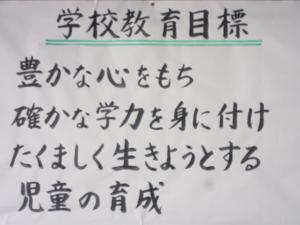 学校教育目標
豊かな心をもち
確かな学力を身に付け
たくましく生きようとする
児童の育成